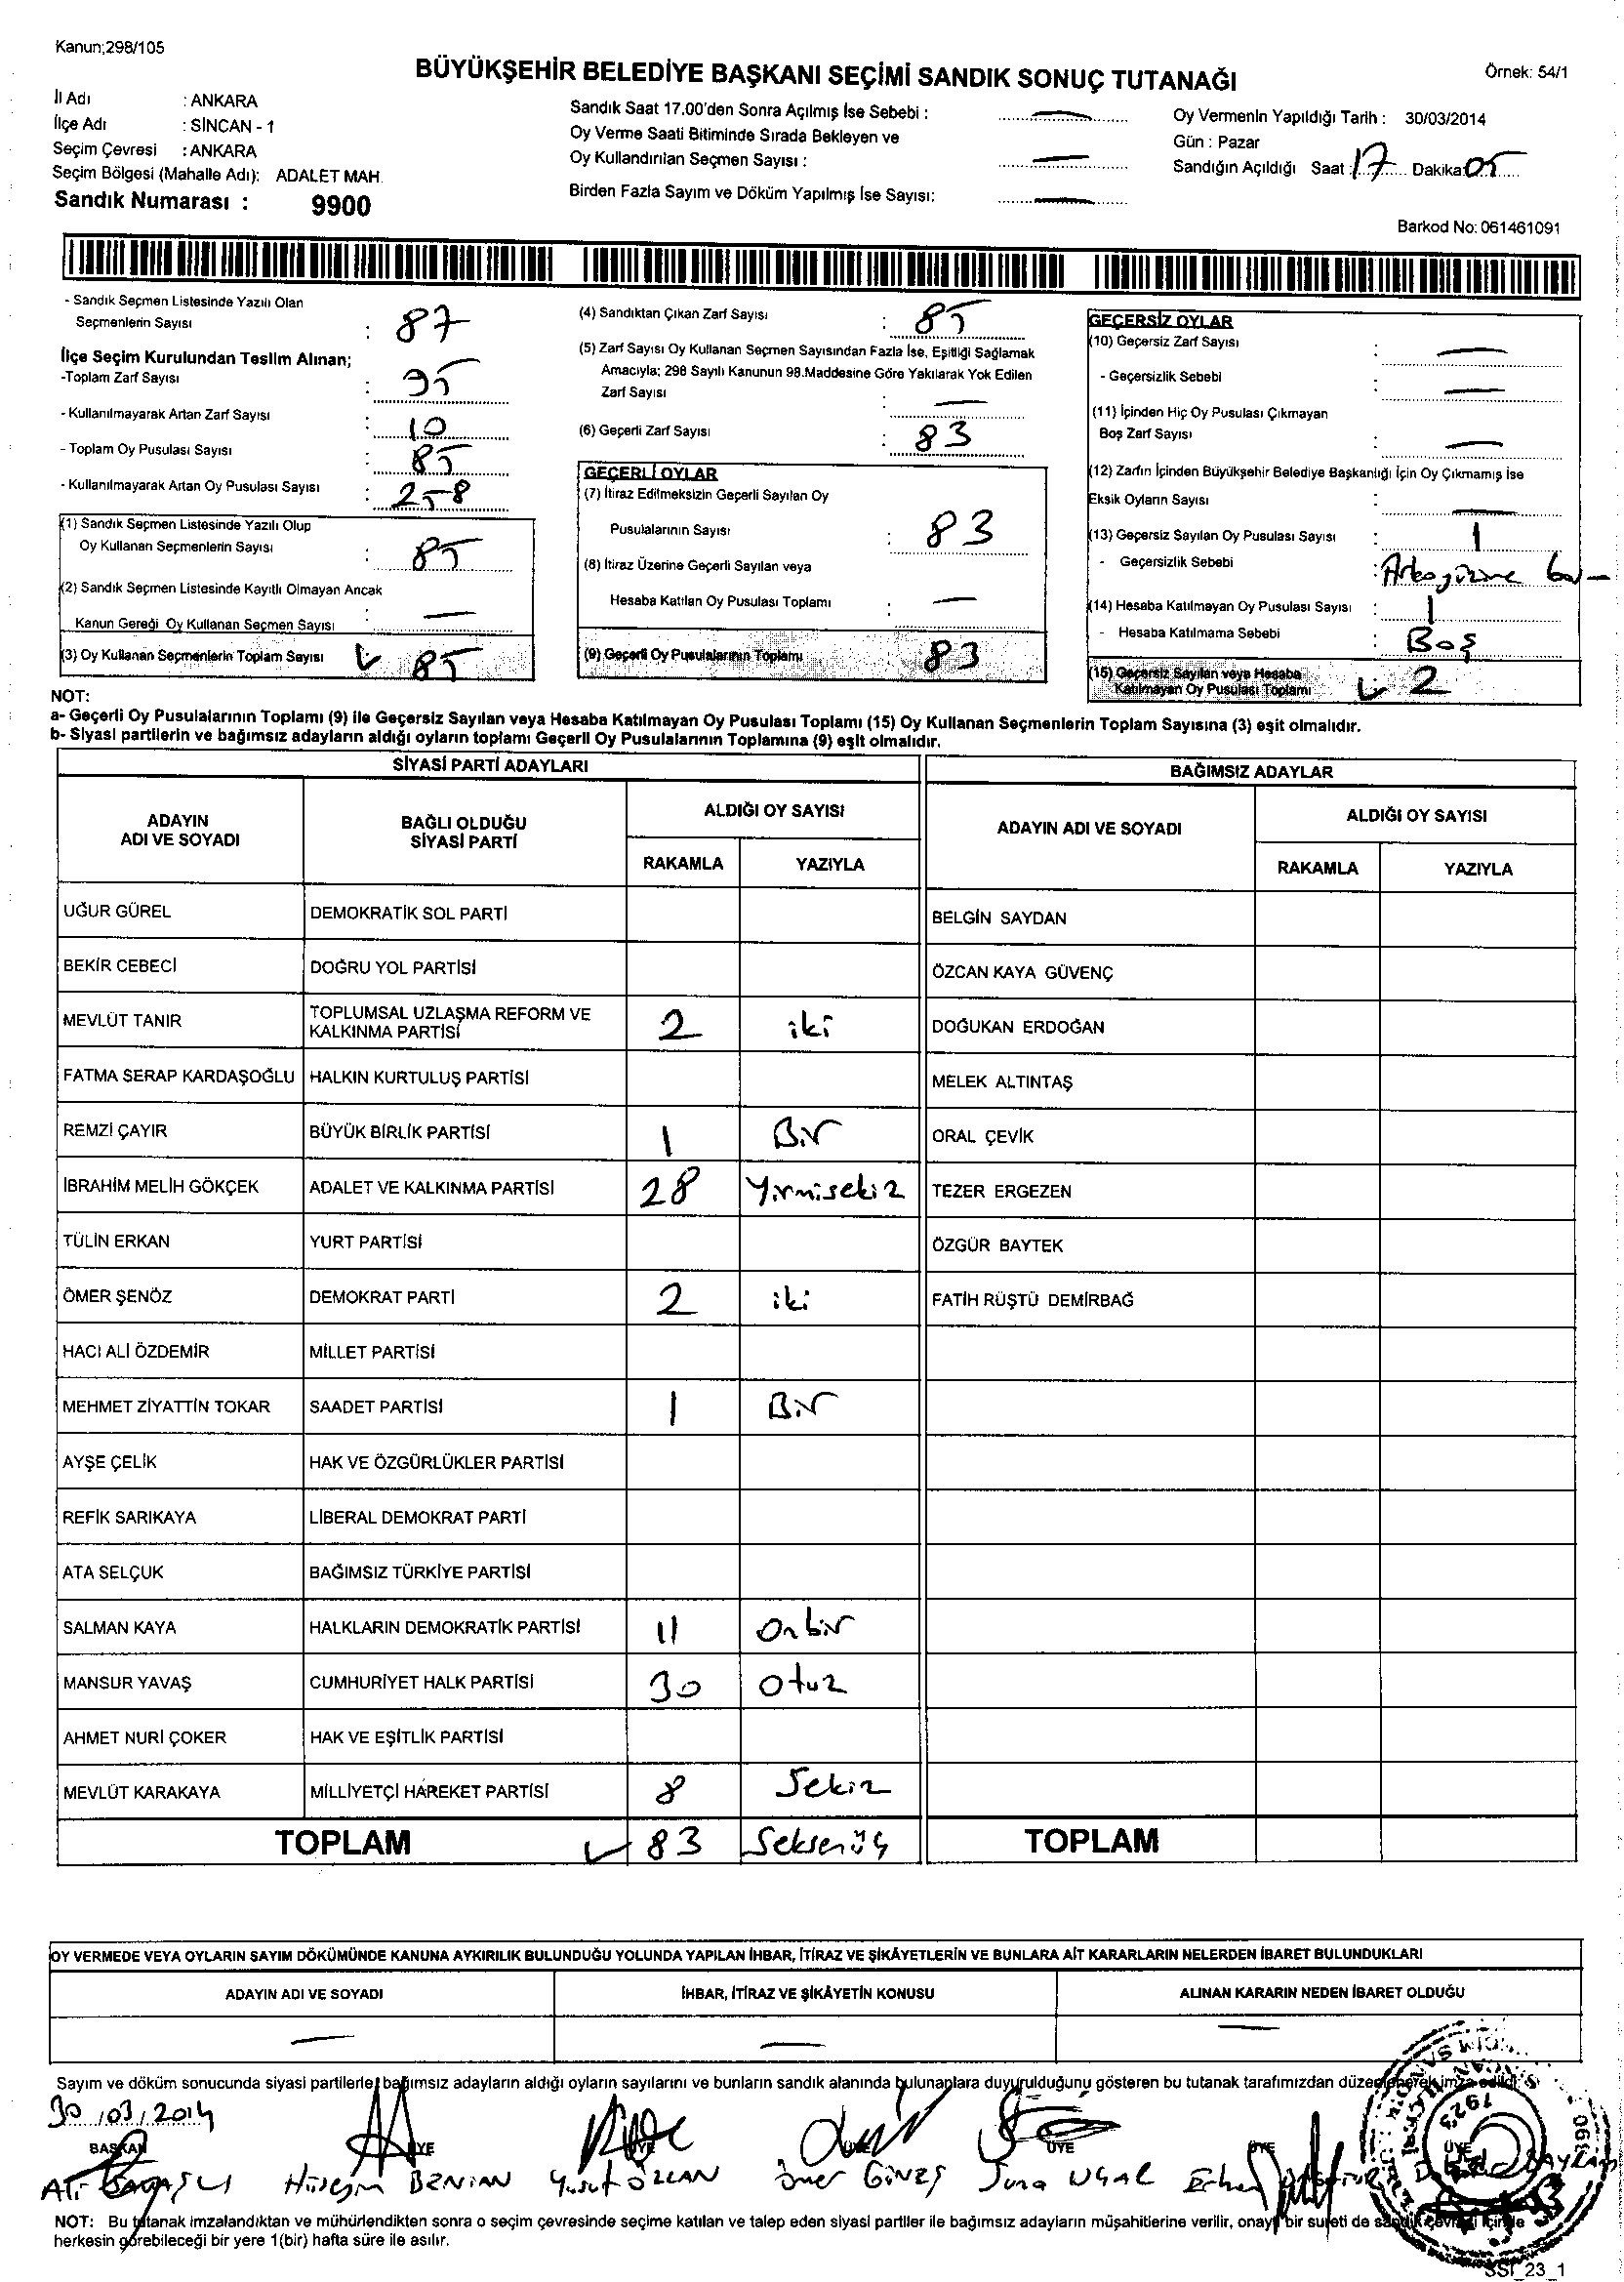 Kanun;298/105
BÜYÜKŞEHİR BELEDİYE BAŞKANI SEÇİMİ SANDIK SONUÇ TUTANAĞI
Örnek: 54/1
İl Adı : ANKARA
İlçe Adı : SİNCAN - 1
Seçim Çevresi : ANKARA
Seçim Bölgesi (Mahalle Adı): ADALET MAH.
Sandık Numarası : 9900
Sandık Saat 17.00'den Sonra Açılmış İse Sebebi :
Oy Verme Saati Bitiminde Sırada Bekleyen ve
Oy Kullandırılan Seçmen Sayısı :
Birden Fazla Sayım ve Döküm Yapılmış İse Sayısı:
Oy Vermenin Yapıldığı Tarih : 30/03/2014
Gün : Pazar
Sandığın Açıldığı Saat 17 Dakika: 05
Barkod No: 061461091
- Sandık Seçmen Listesinde Yazılı Olan
Seçmenlerin Sayısı : 87
İlçe Seçim Kurulundan Teslim Alınan;
-Toplam Zarf Sayısı : 95
- Kullanılmayarak Artan Zarf Sayısı : 10
- Toplam Oy Pusulası Sayısı : 85
- Kullanılmayarak Artan Oy Pusulası Sayısı : 258
(1) Sandık Seçmen Listesinde Yazılı Olup
Oy Kullanan Seçmenlerin Sayısı : 85
(2) Sandık Seçmen Listesinde Kayıtlı Olmayan Ancak
Kanun Gereği Oy Kullanan Seçmen Sayısı :
(3) Oy Kullanan Seçmenlerin Toplam Sayısı 85
(4) Sandıktan Çıkan Zarf Sayısı : 85
(5) Zarf Sayısı Oy Kullanan Seçmen Sayısından Fazla İse, Eşitliği Sağlamak
Amacıyla; 298 Sayılı Kanunun 98.Maddesine Göre Yakılarak Yok Edilen
Zarf Sayısı :
(6) Geçerli Zarf Sayısı : 83
GEÇERLİ OYLAR
(7) İtiraz Edilmeksizin Geçerli Sayılan Oy
Pusulalarının Sayısı : 83
(8) İtiraz Üzerine Geçerli Sayılan veya
Hesaba Katılan Oy Pusulası Toplamı :
(9) Geçerli Oy Pusulalarının Toplamı : 83
GEÇERSİZ OYLAR
(10) Geçersiz Zarf Sayısı :
- Geçersizlik Sebebi :
(11) İçinden Hiç Oy Pusulası Çıkmayan
Boş Zarf Sayısı :
(12) Zarfın İçinden Büyükşehir Belediye Başkanlığı İçin Oy Çıkmamış İse
Eksik Oyların Sayısı :
(13) Geçersiz Sayılan Oy Pusulası Sayısı : 1
- Geçersizlik Sebebi :
(14) Hesaba Katılmayan Oy Pusulası Sayısı : 1
- Hesaba Katılmama Sebebi : Boş
(15) Geçersiz Sayılan veya Hesaba
Katılmayan Oy Pusulası Toplamı 2
NOT:
a- Geçerli Oy Pusulalarının Toplamı (9) ile Geçersiz Sayılan veya Hesaba Katılmayan Oy Pusulası Toplamı (15) Oy Kullanan Seçmenlerin Toplam Sayısına (3) eşit olmalıdır.
b- Siyasi partilerin ve bağımsız adayların aldığı oyların toplamı Geçerli Oy Pusulalarının Toplamına (9) eşit olmalıdır.
SİYASİ PARTİ ADAYLARI
BAĞIMSIZ ADAYLAR
ADAYIN ADI VE SOYADI
BAĞLI OLDUĞU SİYASİ PARTİ
ALDIĞI OY SAYISI
RAKAMLA YAZIYLA
ADAYIN ADI VE SOYADI
ALDIĞI OY SAYISI
RAKAMLA YAZIYLA
UĞUR GÜREL DEMOKRATİK SOL PARTİ BELGİN SAYDAN
BEKİR CEBECİ DOĞRU YOL PARTİSİ ÖZCAN KAYA GÜVENÇ
MEVLÜT TANIR TOPLUMSAL UZLAŞMA REFORM VE KALKINMA PARTİSİ 2 iki DOĞUKAN ERDOĞAN
FATMA SERAP KARDAŞOĞLU HALKIN KURTULUŞ PARTİSİ MELEK ALTINTAŞ
REMZİ ÇAYIR BÜYÜK BİRLİK PARTİSİ 1 Bir ORAL ÇEVİK
İBRAHİM MELİH GÖKÇEK ADALET VE KALKINMA PARTİSİ 28 Yirmisekiz TEZER ERGEZEN
TÜLİN ERKAN YURT PARTİSİ ÖZGÜR BAYTEK
ÖMER ŞENÖZ DEMOKRAT PARTİ 2 iki FATİH RÜŞTÜ DEMİRBAĞ
HACI ALİ ÖZDEMİR MİLLET PARTİSİ
MEHMET ZİYATTİN TOKAR SAADET PARTİSİ 1 Bir
AYŞE ÇELİK HAK VE ÖZGÜRLÜKLER PARTİSİ
REFİK SARIKAYA LİBERAL DEMOKRAT PARTİ
ATA SELÇUK BAĞIMSIZ TÜRKİYE PARTİSİ
SALMAN KAYA HALKLARIN DEMOKRATİK PARTİSİ 11 Onbir
MANSUR YAVAŞ CUMHURİYET HALK PARTİSİ 30 Otuz
AHMET NURİ ÇOKER HAK VE EŞİTLİK PARTİSİ
MEVLÜT KARAKAYA MİLLİYETÇİ HAREKET PARTİSİ 8 Sekiz
TOPLAM 83 Seksenüç TOPLAM
OY VERMEDE VEYA OYLARIN SAYIM DÖKÜMÜNDE KANUNA AYKIRILIK BULUNDUĞU YOLUNDA YAPILAN İHBAR, İTİRAZ VE ŞİKÂYETLERİN VE BUNLARA AİT KARARLARIN NELERDEN İBARET BULUNDUKLARI
ADAYIN ADI VE SOYADI İHBAR, İTİRAZ VE ŞİKÂYETİN KONUSU ALINAN KARARIN NEDEN İBARET OLDUĞU
Sayım ve döküm sonucunda siyasi partilerle bağımsız adayların aldığı oyların sayılarını ve bunların sandık alanında bulunanlara duyurulduğunu gösteren bu tutanak tarafımızdan düzenlenerek imza edildi.
30/03/2014
BAŞKAN ÜYE ÜYE ÜYE ÜYE ÜYE ÜYE
Hüseyin BENİAN Yusuf ÖZCAN Ömer GÜNEŞ
NOT: Bu tutanak imzalandıktan ve mühürlendikten sonra o seçim çevresinde seçime katılan ve talep eden siyasi partiler ile bağımsız adayların müşahitlerine verilir, onaylı bir sureti de sandık çevresi içinde
herkesin görebileceği bir yere 1(bir) hafta süre ile asılır.
SSI_23_1